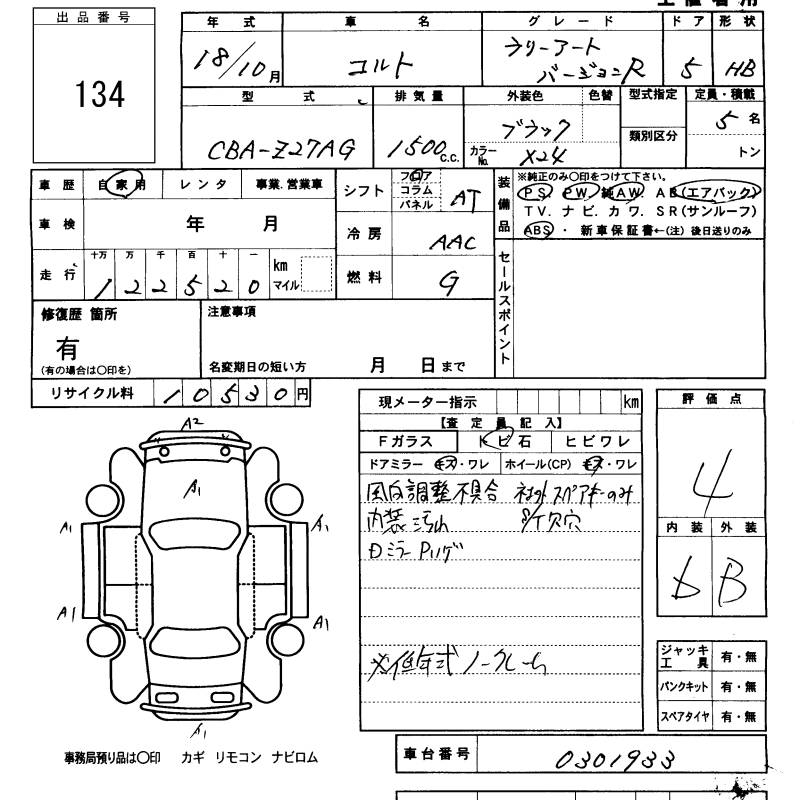 出品番号
134
年式 車名 グレード ドア 形状
18/10月 コルト ラリーアート バージョンR 5 HB
型式 排気量 外装色 色替 型式指定 定員・積載
類別区分
CBA-Z27AG 1500c.c. ブラック 5名
カラーNo. X24 トン
車歴 自家用 レンタ 事業.営業車
シフト フロア コラム パネル AT
装備品 ※純正のみ〇印をつけて下さい。
PS. PW. 純AW. AB(エアバック)
TV. ナビ. カワ. SR(サンルーフ)
ABS ・ 新車保証書←(注) 後日送りのみ
車検 年 月
冷房 AAC
走行 十万 万 千 百 十 一 km マイル
122520
燃料 G
セールスポイント
修復歴 箇所 注意事項
有
(有の場合は〇印を) 名変期日の短い方 月 日まで
リサイクル料 10530円
現メーター指示 km
【査定員記入】
Fガラス トビ石 ヒビワレ
ドアミラー キズ・ワレ ホイール(CP) キズ・ワレ
風向調整不具合 社外スペアキーのみ
内装汚れ
Dミラー
ノークレーム
評価点
4
内装 外装
b B
A2
A1
A1 A1
A1 A1
A1
ジャッキ工具 有・無
パンクキット 有・無
スペアタイヤ 有・無
事務局預り品は〇印 カギ リモコン ナビロム
車台番号 0301933